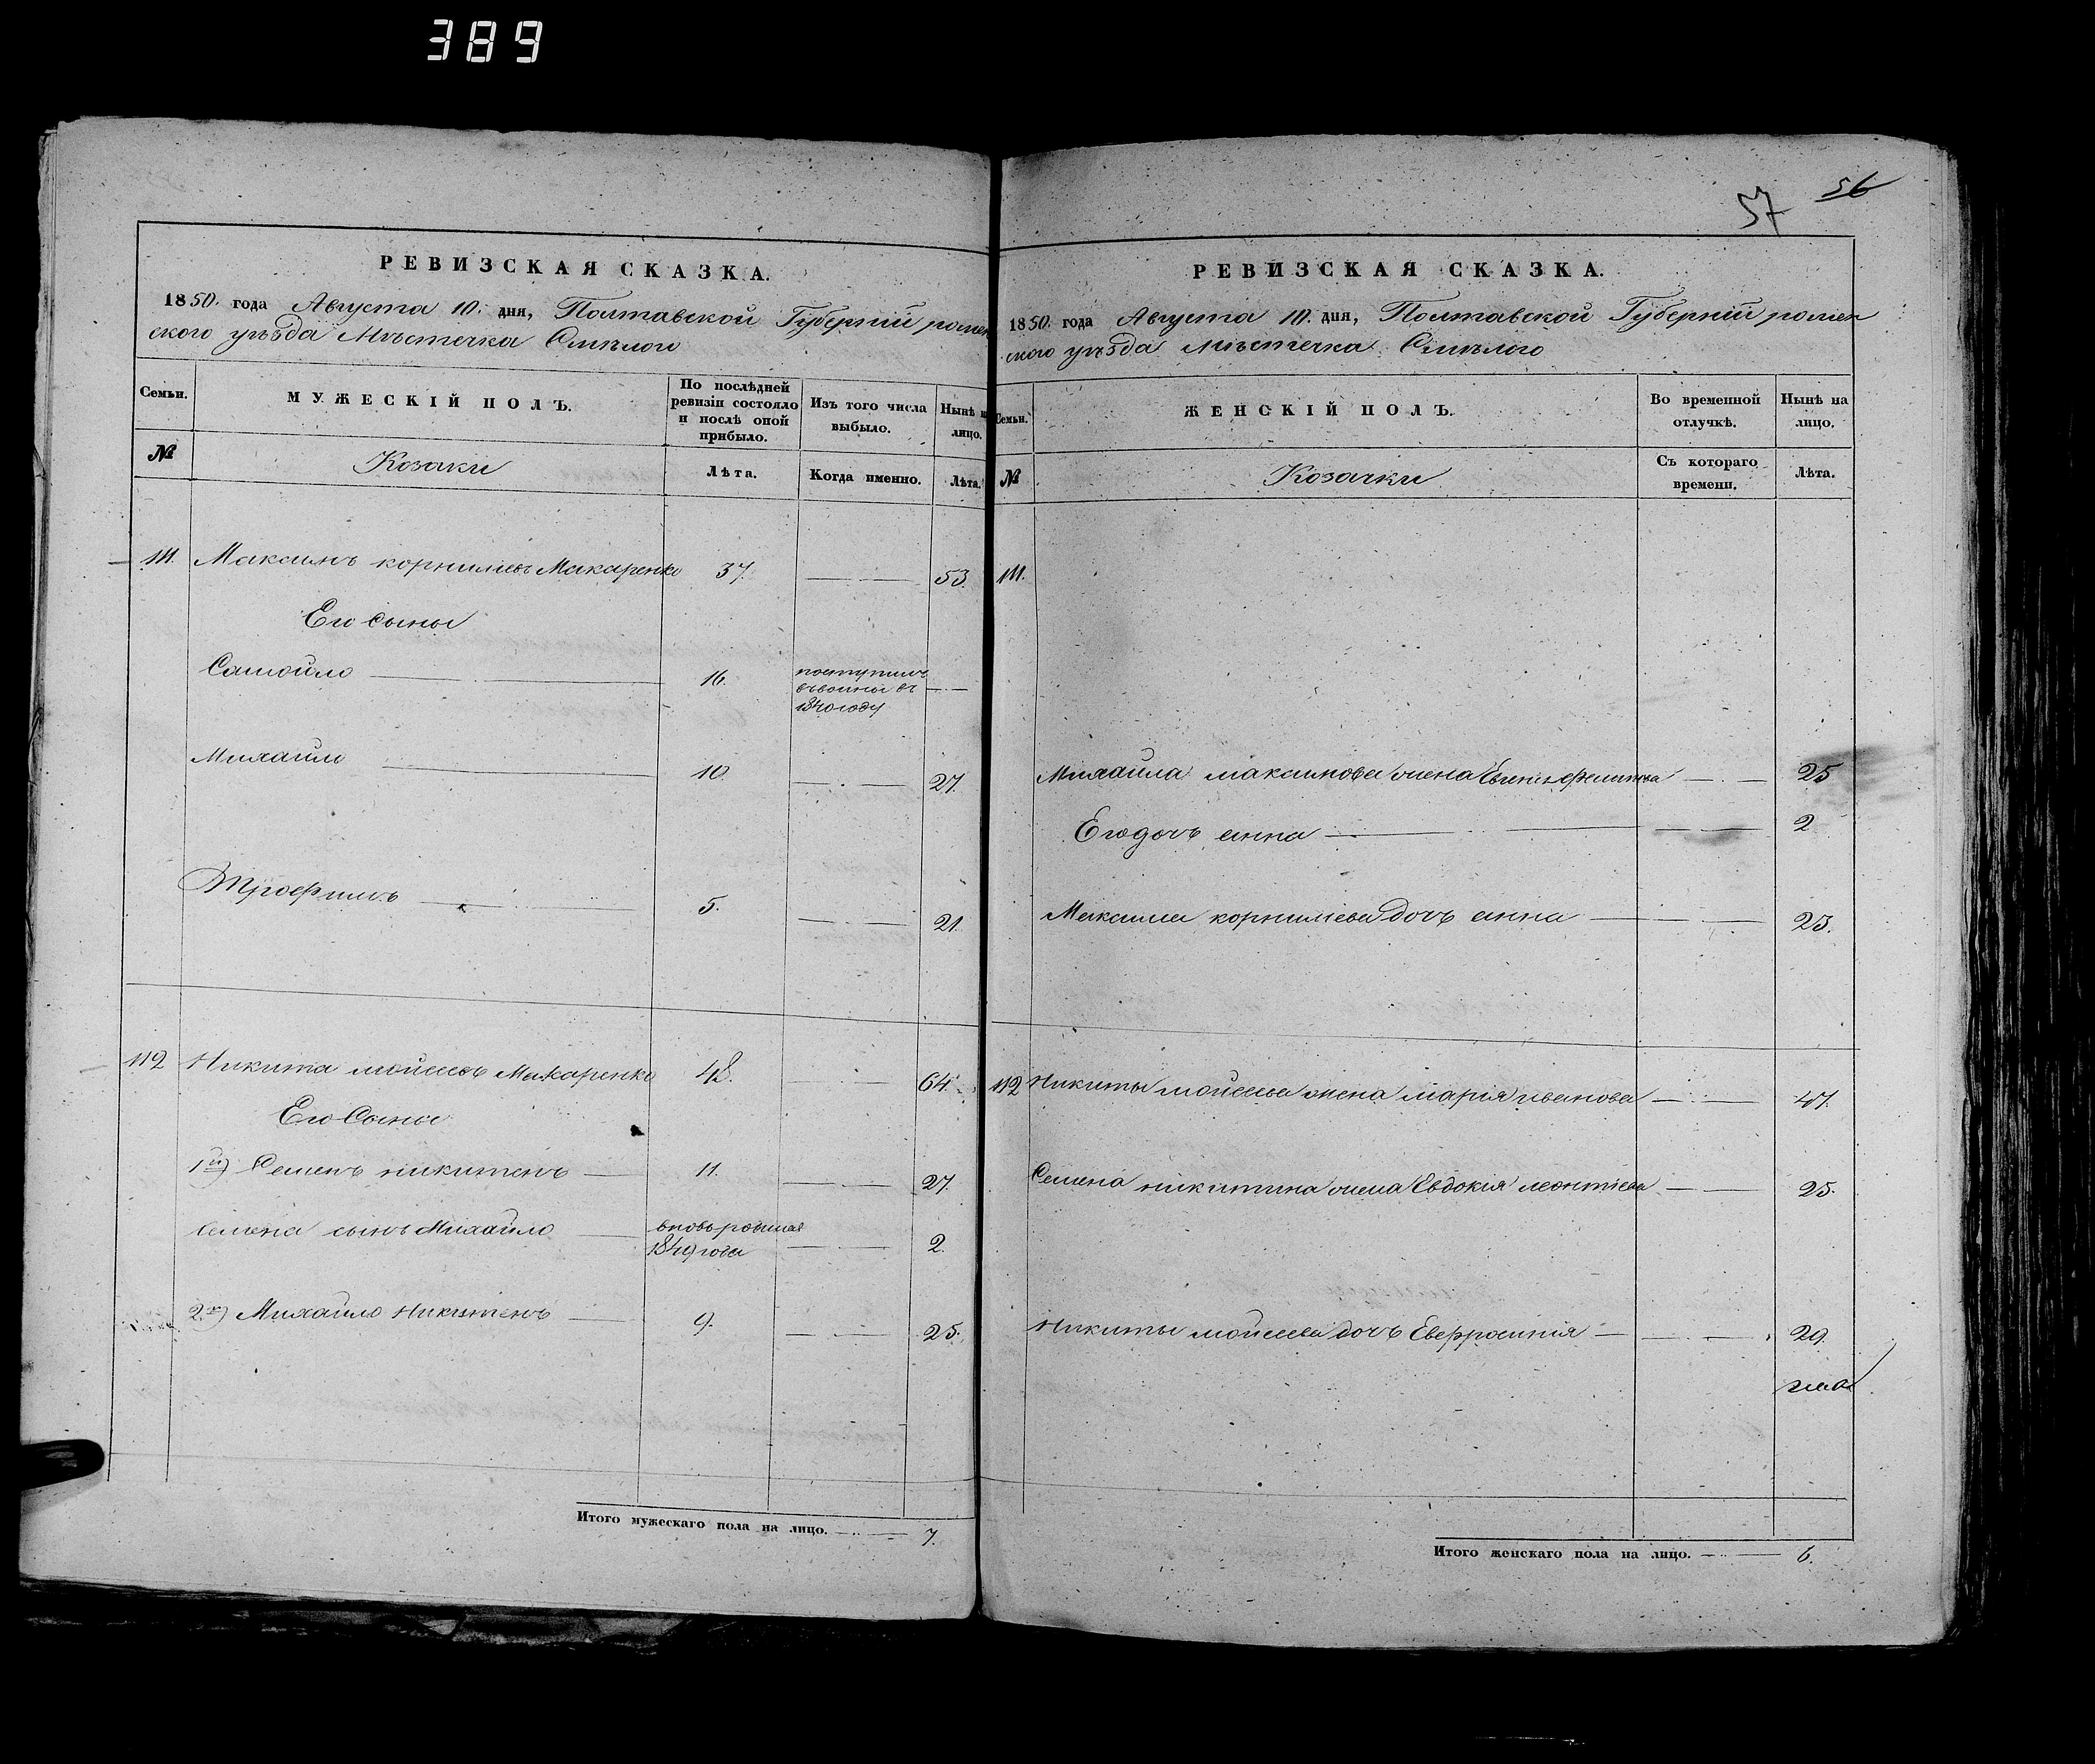 389
РЕВИЗСКАЯ СКАЗКА.
1850. года Августа 10. дня, Полтавской Губерніи ромен
ского уѣзда Мѣстечка Смѣлого
Семьи.
МУЖЕСКІЙ ПОЛЪ.
По послѣдней ревизіи состояло и послѣ оной прибыло.
Изъ того числа выбыло.
Нынѣ на лицо.
№
Козаки
Лѣта.
Когда именно.
Лѣта.
111. Максимъ корнилiевъ Макаренко 37. 53.
Его Сыны
Самойло 16. поступилъ
въ воины въ
1840 году
Михайло 10. 27.
Трофимъ 5. 21.
112 Никита мойсеевъ Макаренко 48. 64.
Его Сыны
1й) Семенъ никитенъ 11. 27.
Семена сынъ Михайло вновь рожд
1849 года 2.
2й) Михайло Никитенъ 9. 25.
Итого мужескаго пола на лицо. 7.
57 56
РЕВИЗСКАЯ СКАЗКА.
1850. года Августа 10. дня, Полтавской Губерніи ромен
ского уѣзда Мѣстечка Смѣлого
Семьи.
ЖЕНСКІЙ ПОЛЪ.
Во временной отлучкѣ.
Нынѣ на лицо.
№
Козачки
Съ котораго времени.
Лѣта.
111.
Михайла максимова жена 25
Его дочь анна 2
Максима корнилiева дочь анна 23.
112 Никиты мойсеева жена марія иванова 47.
Семена никитина жена Евдокія леонтіева 25.
Никиты мойсеева дочь Евфросинія 29.
Итого женскаго пола на лицо. 6.